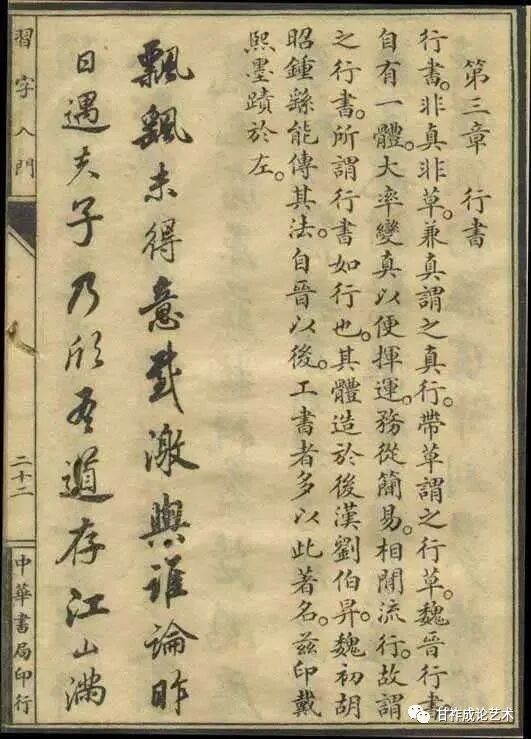 第三章 行書
行書。非真非草。兼真謂之真行。帶草謂之行草。魏晉行書。
自有一體。大率變真以便揮運。務從簡易。相閒流行。故謂
之行書。所謂行書如行也。其體造於後漢劉伯昇。魏初胡
昭鍾繇能傳其法。自晉以後。工書者多以此著名。茲印戴
熙墨蹟於左。
飄飄未得意感激與誰論昨
日遇夫子乃欣吾道存江山滿
習字入門
二十二
中華書局印行
甘祚成论艺术